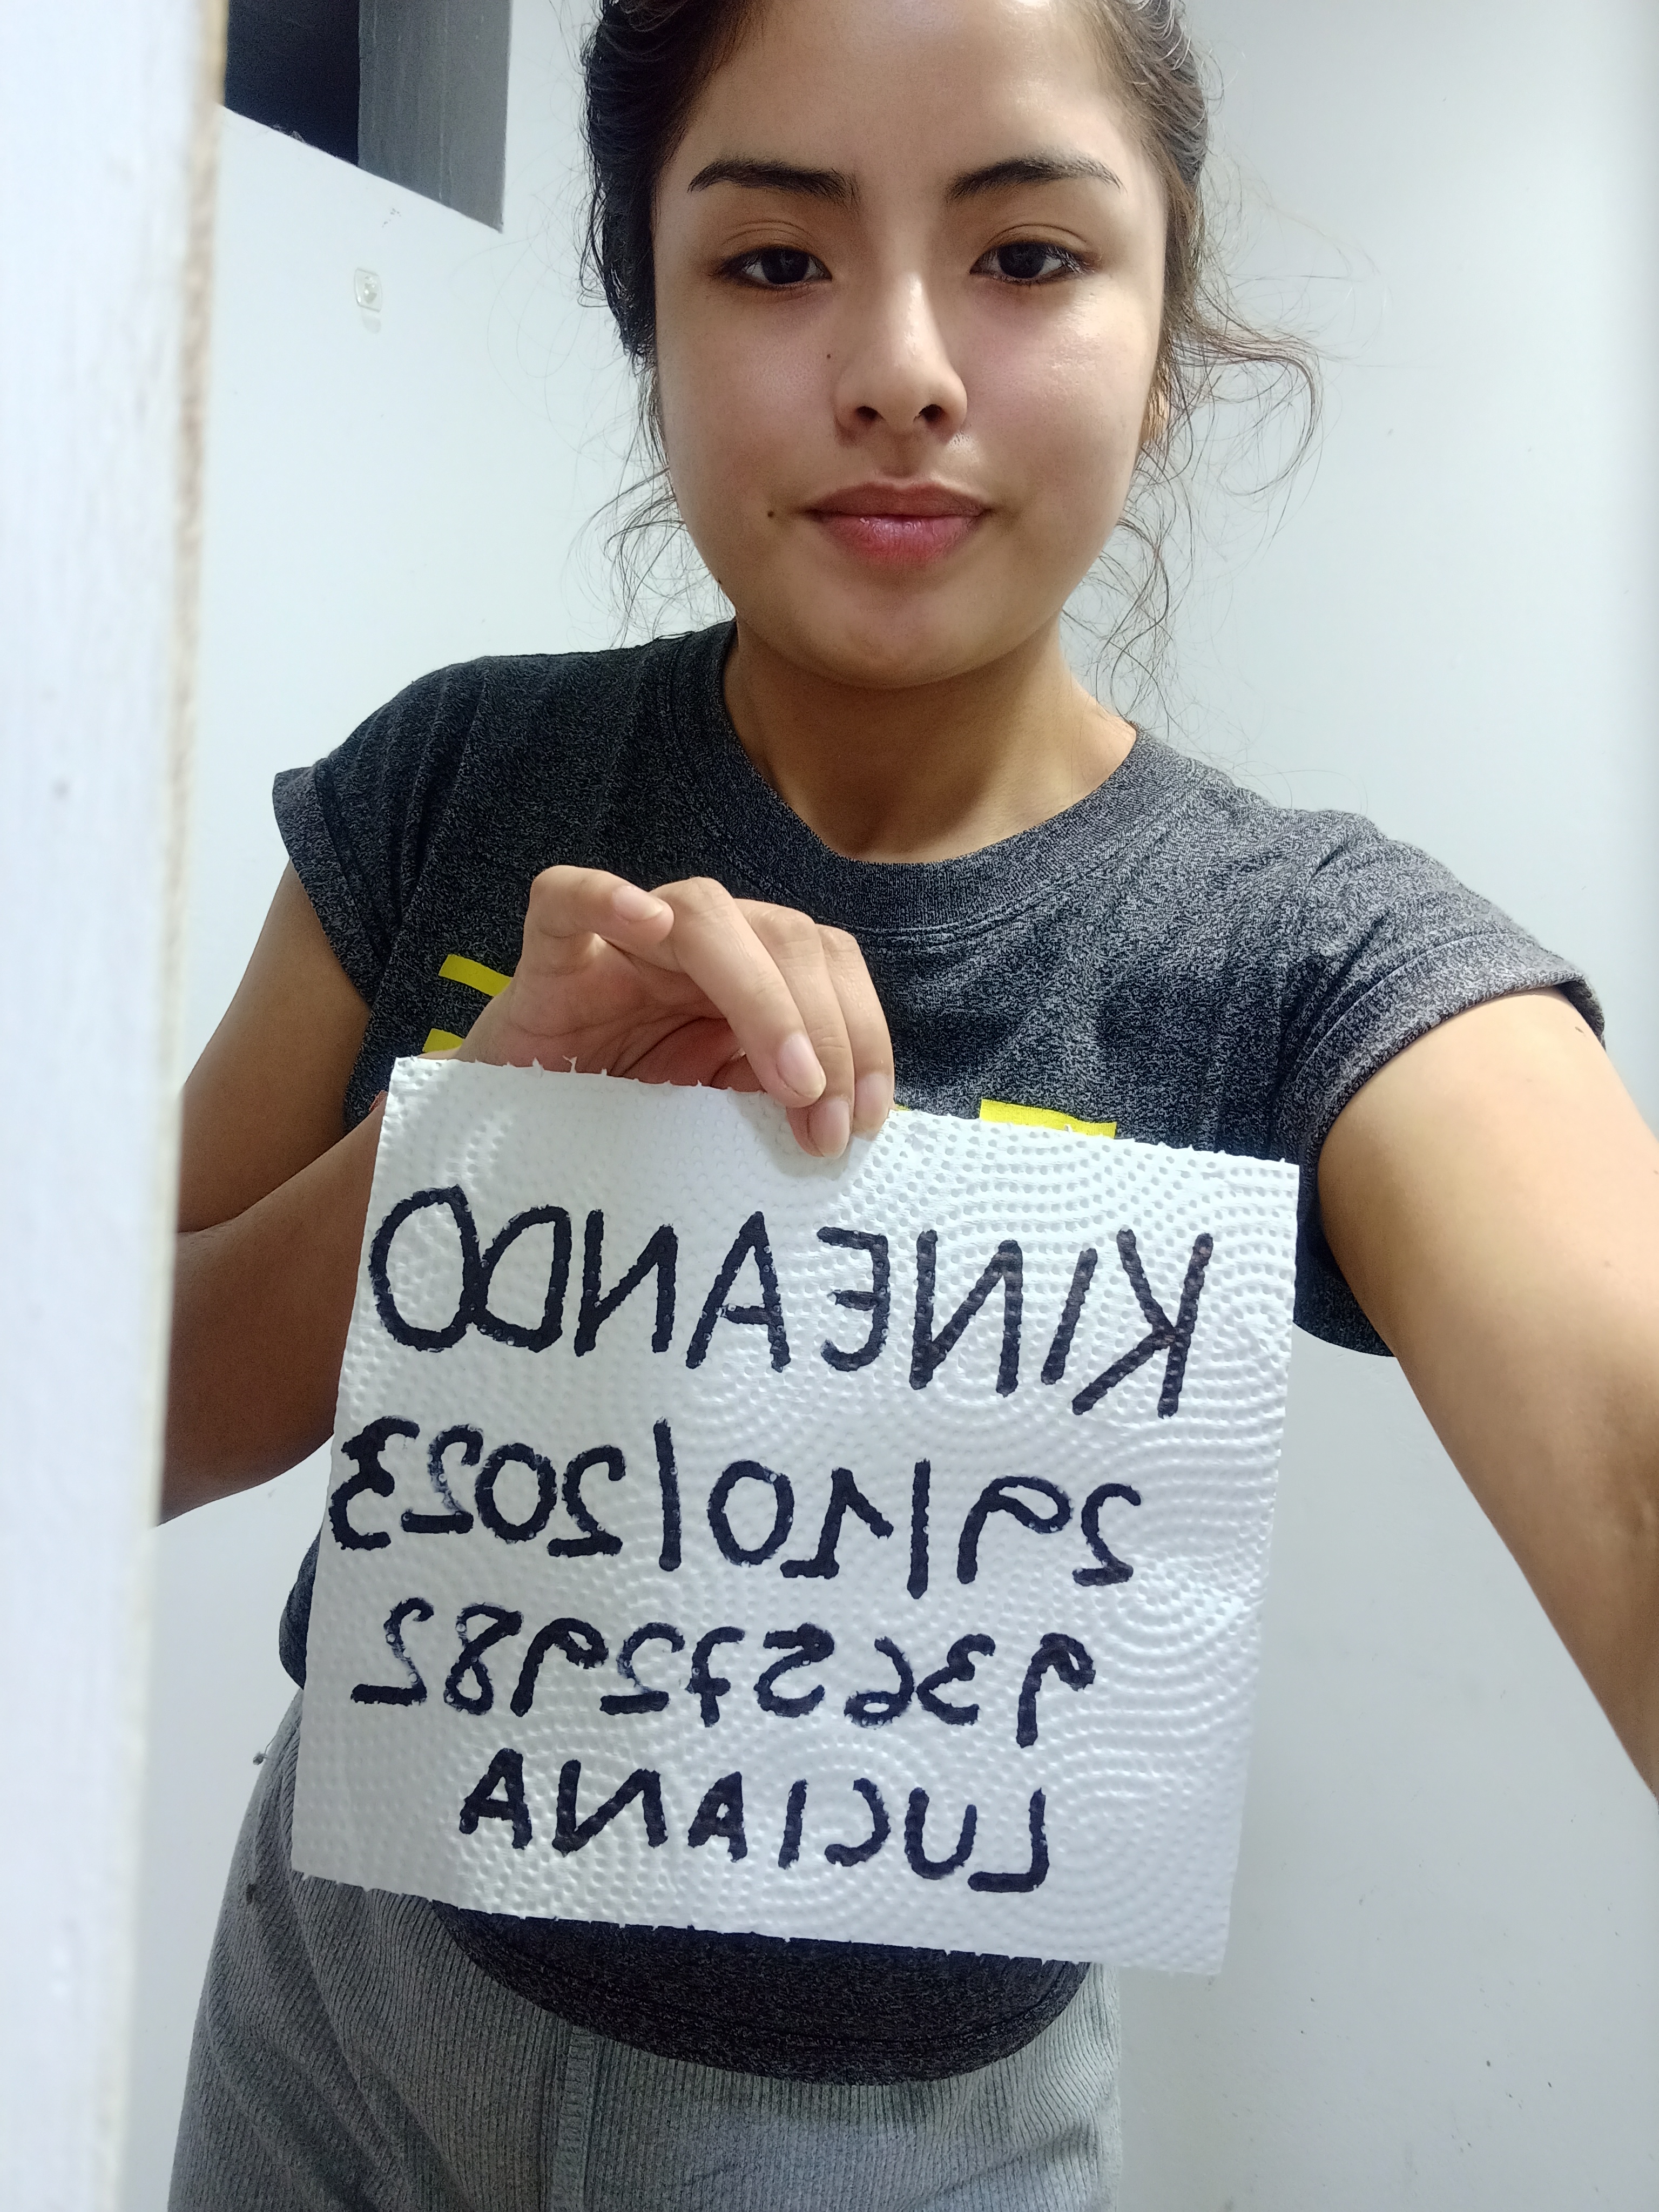 KINEANDO
29/10/2023
936572982
LUCIANA